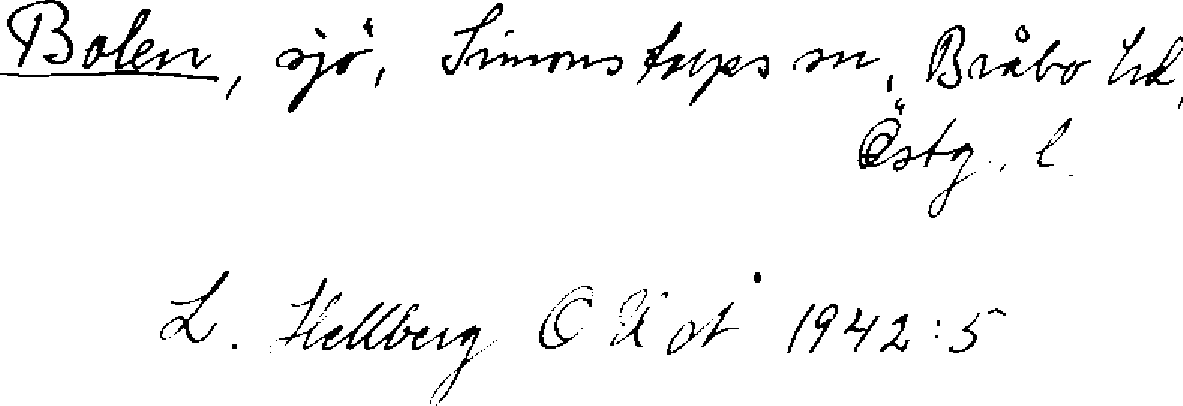 Bolen, sjö, Simonstorps sn, Bråbo hd,
Östg. l.
L. Hellberg OUÅ 1942:5